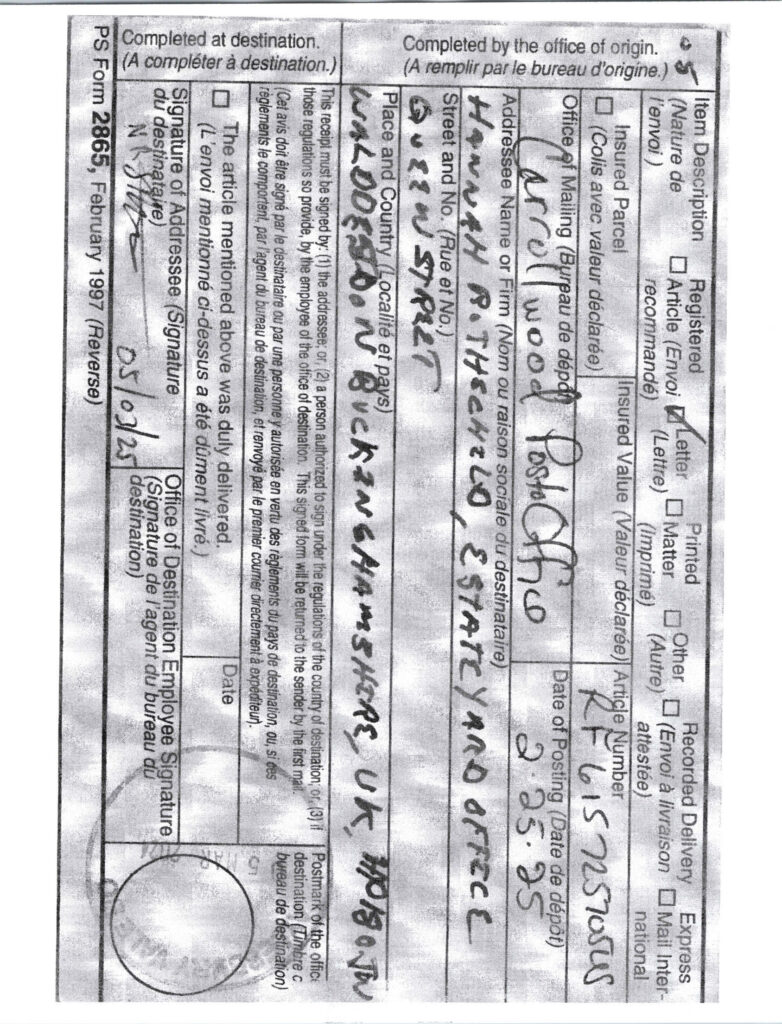 05
Completed by the office of origin.
(A remplir par le bureau d'origine.)
Item Description
(Nature de
l'envoi)
Registered
Article (Envoi
recommandé)
Letter
(Lettre)
Printed
Matter
(Imprimé)
Other
(Autre)
Recorded Delivery
(Envoi à livraison
attestée)
Express
Mail Inter-
national
Insured Parcel
(Colis avec valeur déclarée)
Insured Value (Valeur déclarée)
Article Number
RF615725705US
Office of Mailing (Bureau de dépôt)
Carrollwood Post Office
Date of Posting (Date de dépôt)
2.25.25
Addressee Name or Firm (Nom ou raison sociale du destinataire)
HANNAH ROTHSCHILD, ESTATE YARD OFFICE
Street and No. (Rue et No.)
QUEEN STREET
Place and Country (Localité et pays)
WADDESDON BUCKINGHAMSHIRE, UK,
Completed at destination.
(A compléter à destination.)
This receipt must be signed by: (1) the addressee; or, (2) a person authorized to sign under the regulations of the country of destination; or, (3) if
those regulations so provide, by the employee of the office of destination. This signed form will be returned to the sender by the first mail.
(Cet avis doit être signé par le destinataire ou par une personne y autorisée en vertu des règlements du pays de destination, ou, si ces
règlements le comportent, par l'agent du bureau de destination, et renvoyé par le premier courrier directement à expéditeur).
The article mentioned above was duly delivered.
(L'envoi mentionné ci-dessus a été dûment livré.)
Date
Postmark of the offic
destination (Timbre c
bureau de destination)
Signature of Addressee (Signature
du destinataire)
05/03/25
Office of Destination Employee Signature
(Signature de l'agent du bureau du
destination)
PS Form 2865, February 1997 (Reverse)